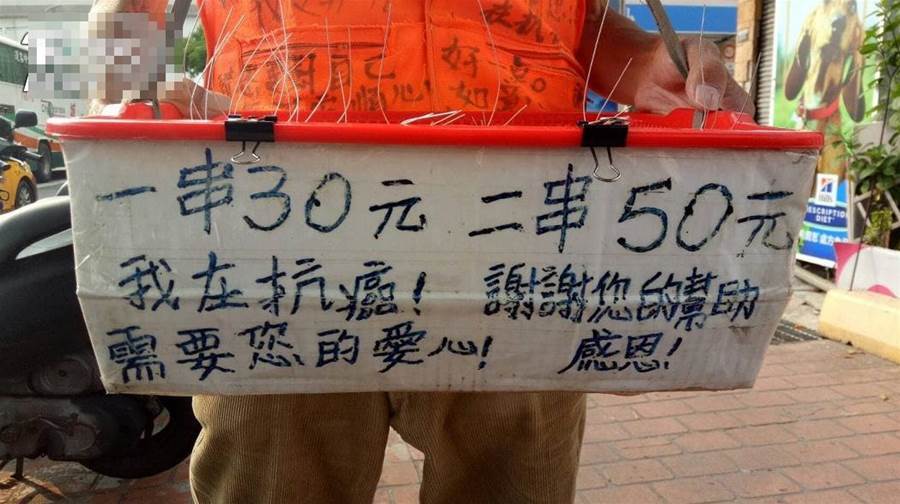 一串30元 二串50元
我在抗癌! 謝謝您的幫助
需要您的愛心! 感恩!
好
如
DESCRIPTION
DIET